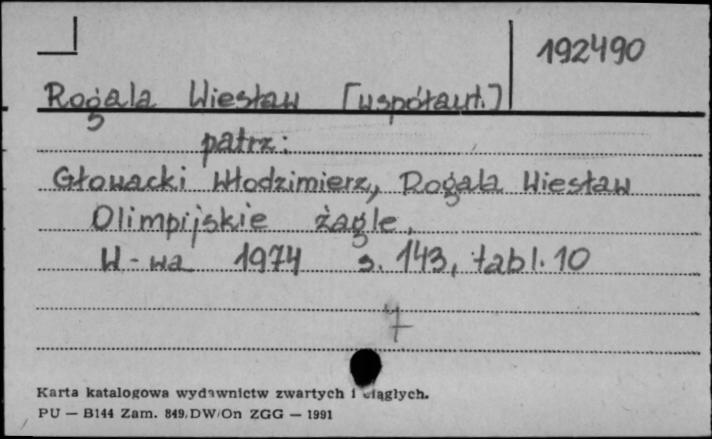 192490
Rogala Wiesław [współaut.]
patrz:
Głowacki Włodzimierz, Rogala Wiesław
Olimpijskie żagle.
W-wa 1974 s. 143, tabl. 10
7
Karta katalogowa wydawnictw zwartych i ciągłych.
PU — B144 Zam. 849/DW/On ZGG — 1991